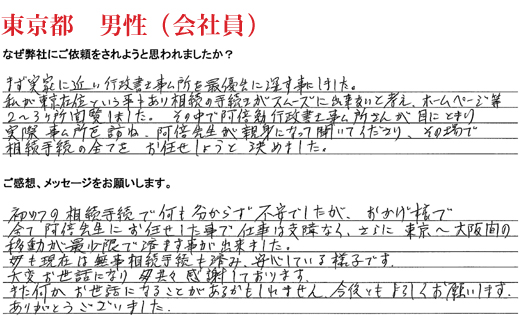 東京都　男性（会社員）
なぜ弊社にご依頼をされようと思われましたか？
まず実家に近い行政書士事ム所を最優先に探す事にしました。
私が東京在住という事もあり相続の手続きがスムーズに出来ないと考え、ホームページ等
2〜3ヶ所閲覧しました。その中で阿倍野行政書士事ム所さんが目にとまり
実際事ム所を訪ね、阿倍先生が親身になって聞いてくださり、その場で
相続手続の全てをお任せしようと決めました。
ご感想、メッセージをお願いします。
初めての相続手続で何も分からず不安でしたが、おかげ様で
全て阿倍先生にお任せした事で仕事に支障なく、さらに東京〜大阪間の
移動が最小限で済ます事が出来ました。
母も現在は無事相続手続も済み、安心している様子です。
大変お世話になり母共々感謝しております。
また何かお世話になることがあるかもしれません、今後ともよろしくお願いします。
ありがとうございました。